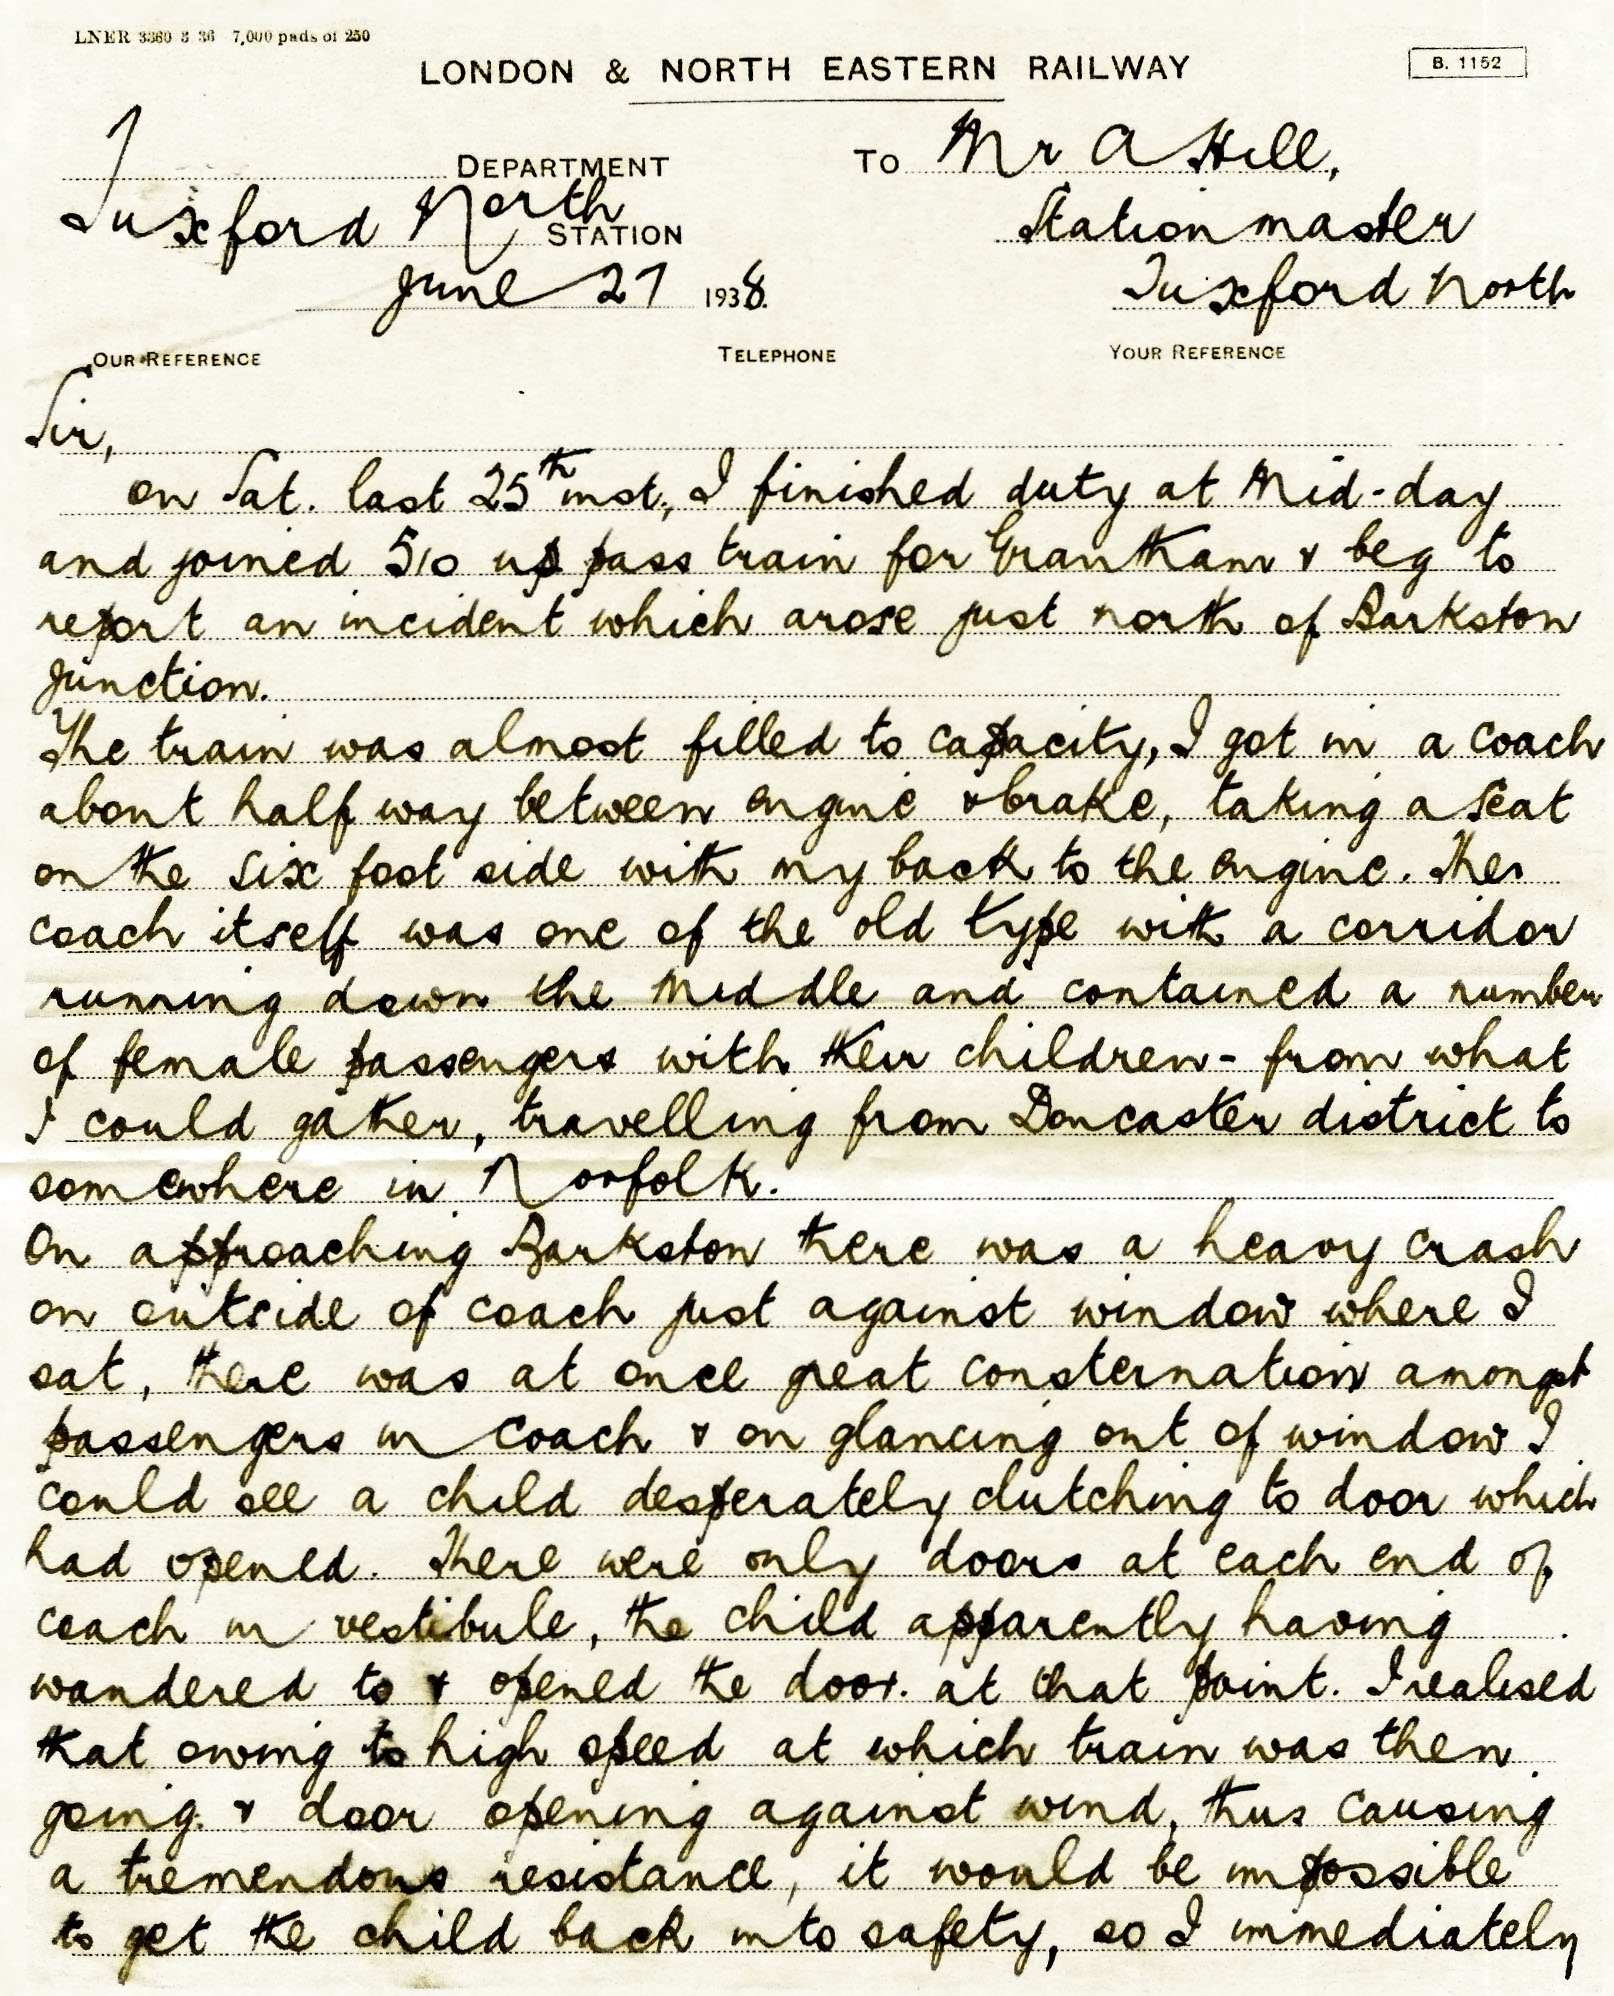 LNER 3360 3 36 7,000 pads of 250
LONDON & NORTH EASTERN RAILWAY
B. 1152
DEPARTMENT
TO Mr A Hill,
Tuxford North STATION
Stationmaster
June 27 1938.
Tuxford North
OUR REFERENCE
TELEPHONE
YOUR REFERENCE
Sir,
on Sat. last 25th inst., I finished duty at Mid-day
and joined 510 up pass train for Grantham & beg to
report an incident which arose just north of Barkston
Junction.
The train was almost filled to capacity, I got in a coach
about half way between engine & brake, taking a seat
on the six foot side with my back to the engine. The
coach itself was one of the old type with a corridor
running down the middle and contained a number
of female passengers with their children - from what
I could gather, travelling from Doncaster district to
somewhere in Norfolk.
On approaching Barkston there was a heavy crash
on outside of coach just against window where I
sat, there was at once great consternation amongst
passengers in coach & on glancing out of window I
could see a child desperately clutching to door which
had opened. There were only doors at each end of
coach in vestibule, the child apparently having
wandered to & opened the door. at that point. I realised
that owing to high speed at which train was then
going. & door opening against wind, thus causing
a tremendous resistance, it would be impossible
to get the child back into safety, so I immediately